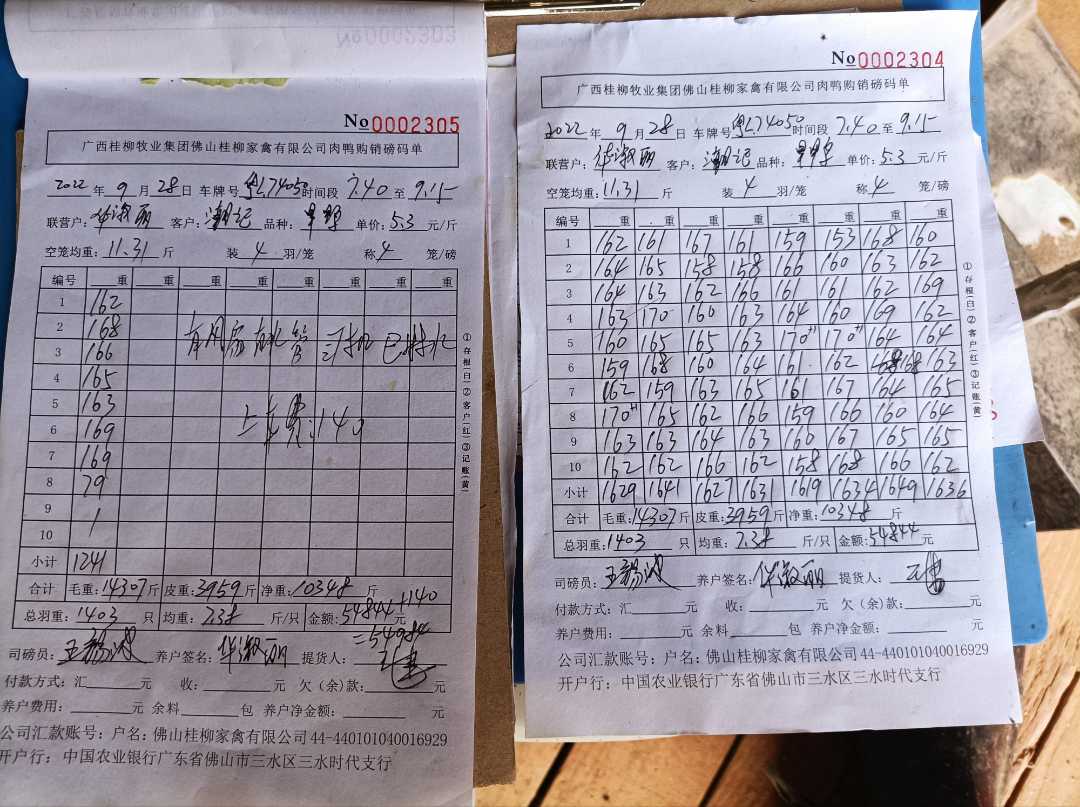 No 0002305
广西桂柳牧业集团佛山桂柳家禽有限公司肉鸭购销磅码单
2022 年 9 月 28 日 车牌号 粤L74050 时间段 7.40 至 9.15
联营户: 华淑丽 客户: 潮记 品种: 单价: 5.3 元/斤
空笼均重: 11.31 斤 装 4 羽/笼 称 4 笼/磅
编号 重 重 重 重 重 重 重 重
1 162
2 168
3 166
4 165
5 163
6 169
7 169
8 79
9 1
10
小计 1241
上车费:140
合计 毛重: 14307 斤 皮重: 3959 斤 净重: 10348 斤
总羽重: 1403 只 均重: 7.38 斤/只 金额: 54844+140
=54984
司磅员: 王锡波 养户签名: 华淑丽 提货人:
付款方式: 汇 元 收: 元 欠(余)款: 元
养户费用: 元 余料 包 养户净金额: 元
公司汇款账号: 户名: 佛山桂柳家禽有限公司 44-440101040016929
开户行: 中国农业银行广东省佛山市三水区三水时代支行
①存根(白)②客户(红)③记账(黄)
No 0002304
广西桂柳牧业集团佛山桂柳家禽有限公司肉鸭购销磅码单
2022 年 9 月 28 日 车牌号 粤L74050 时间段 7.40 至 9.15
联营户: 华淑丽 客户: 潮记 品种: 单价: 5.3 元/斤
空笼均重: 11.31 斤 装 4 羽/笼 称 4 笼/磅
编号 重 重 重 重 重 重 重 重
1 162 161 167 161 159 153 168 160
2 164 165 158 158 166 160 163 162
3 164 163 162 166 161 161 162 169
4 163 170 160 163 164 160 169 162
5 160 165 165 163 170 170 164 164
6 159 168 160 164 161 162 168 163
7 162 159 163 165 161 167 164 165
8 170 165 162 166 159 166 160 164
9 163 163 164 163 160 167 165 165
10 162 162 166 162 158 168 166 162
小计 1629 1641 1627 1631 1619 1634 1649 1636
合计 毛重: 14307 斤 皮重: 3959 斤 净重: 10348 斤
总羽重: 1403 只 均重: 7.38 斤/只 金额: 54844 元
司磅员: 王锡波 养户签名: 华淑丽 提货人:
付款方式: 汇 元 收: 元 欠(余)款: 元
养户费用: 元 余料 包 养户净金额: 元
公司汇款账号: 户名: 佛山桂柳家禽有限公司 44-440101040016929
开户行: 中国农业银行广东省佛山市三水区三水时代支行
①存根(白)②客户(红)③记账(黄)